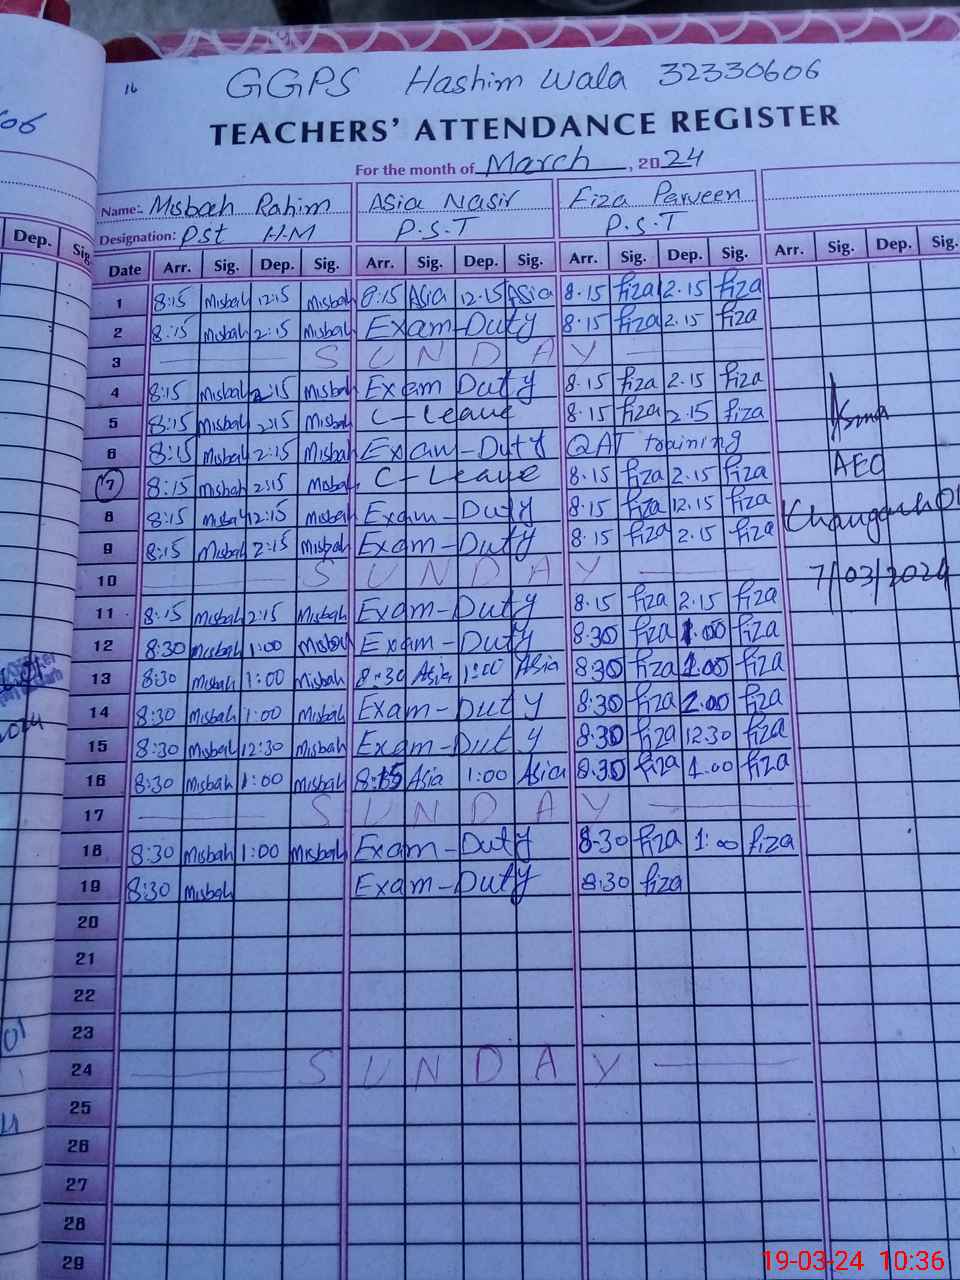 16
GGPS Hashim wala 32330606
TEACHERS' ATTENDANCE REGISTER
For the month of March, 2024
Name:- Misbah Rahim Asia Nasir Fiza Parveen
Designation: PST H.M P.S.T P.S.T
Dep. Sig.
Date Arr. Sig. Dep. Sig. Arr. Sig. Dep. Sig. Arr. Sig. Dep. Sig. Arr. Sig. Dep. Sig.
1 8:15 Misbah 12:15 Misbah 8:15 Asia 12.15 Asia 8.15 fiza 12.15 fiza
2 8:15 Misbah 2:15 Misbah Exam-Duty 8.15 fiza 2.15 fiza
3 SUNDAY
4 8:15 Misbah 2:15 Misbah Exam Duty 8.15 fiza 2.15 fiza
5 8:15 Misbah 2:15 Misbah C-Leave 8.15 fiza 2.15 fiza
6 8:15 Misbah 2:15 Misbah Exam-Duty QAT training
7 8:15 Misbah 2:15 Misbah C-Leave 8.15 fiza 2.15 fiza
8 8:15 Misbah 12:15 Misbah Exam-Duty 8.15 fiza 12.15 fiza
9 8:15 Misbah 2:15 Misbah Exam-Duty 8.15 fiza 2.15 fiza
10 SUNDAY
11 8:15 Misbah 2:15 Misbah Exam-Duty 8.15 fiza 2.15 fiza
12 8:30 Misbah 1:00 Misbah Exam-Duty 8.30 fiza 1.00 fiza
13 8:30 Misbah 1:00 Misbah 8:30 Asia 1:00 Asia 8.30 fiza 1.00 fiza
14 8:30 Misbah 1:00 Misbah Exam-Duty 8.30 fiza 2.00 fiza
15 8:30 Misbah 12:30 Misbah Exam-Duty 8.30 fiza 12.30 fiza
16 8:30 Misbah 1:00 Misbah 8:15 Asia 1:00 Asia 8.30 fiza 1.00 fiza
17 SUNDAY
18 8:30 Misbah 1:00 Misbah Exam-Duty 8-30 fiza 1:00 fiza
19 8:30 Misbah Exam-Duty 8:30 fiza
20
21
22
23
24 SUNDAY
25
26
27
28
29
Asma
AEO
7/03/2024
19-03-24 10:36